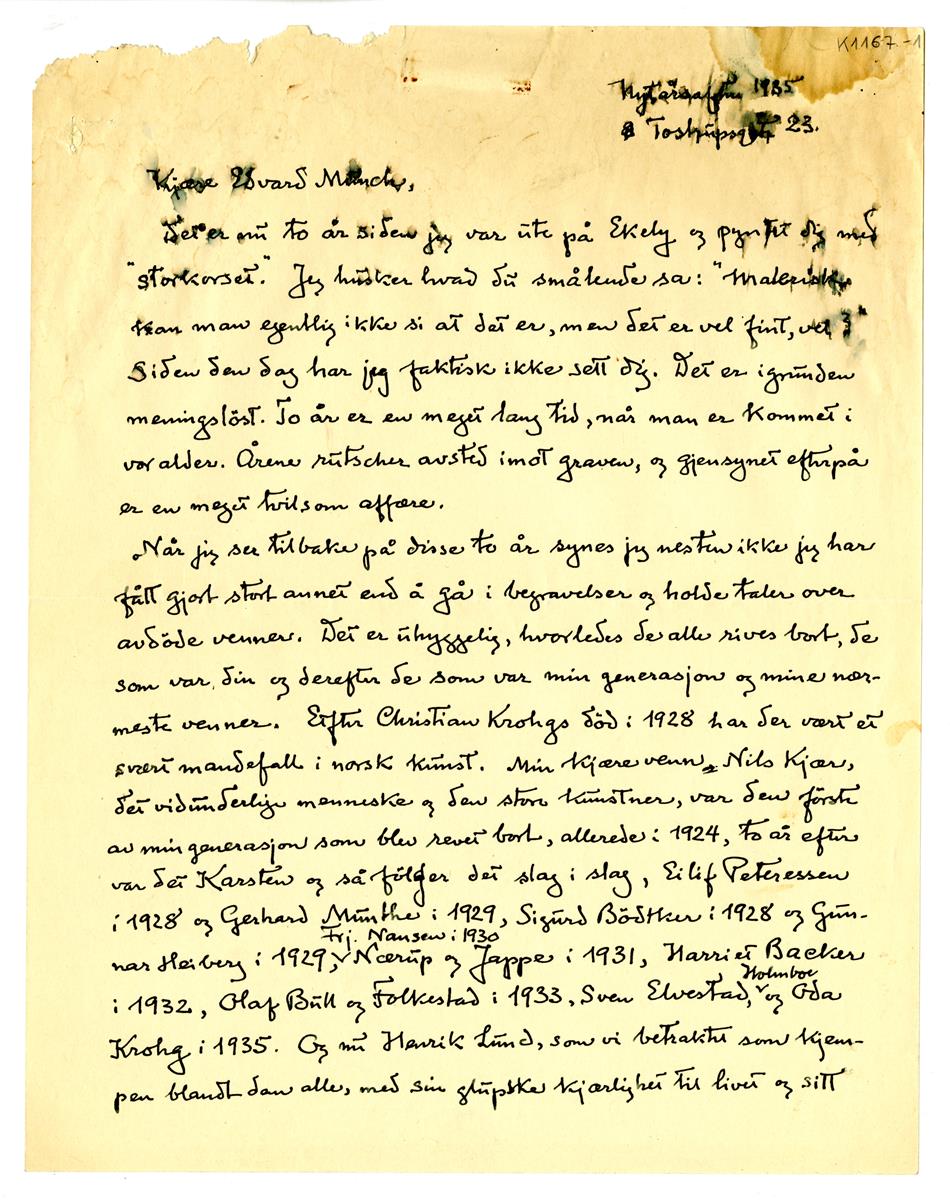 K1167.-1
Nytårsaften 1935
Tostrupsgt 23.
Kjære Edvard Munch,
Det er nu to år siden jeg var ute på Ekely og pyntet dig med
"storkorset." Jeg husker hvad du smålende sa: "Malerisk
kan man egentlig ikke si at det er, men det er vel fint, vel?"
Siden den dag har jeg faktisk ikke sett dig. Det er igrunden
meningslöst. To år er en meget lang tid, når man er kommet i
vor alder. Årene rutscher avsted imot graven, og gjensynet efterpå
er en meget tvilsom affære.
Når jeg ser tilbake på disse to år synes jeg nesten ikke jeg har
fått gjort stort annet end å gå i begravelser og holde taler over
avdöde venner. Det er uhyggelig, hvorledes de alle rives bort, de
som var din og derefter de som var min generasjon og mine nær-
meste venner. Efter Christian Krohgs död i 1928 har der vært et
svært mandefall i norsk kunst. Min kjære venn Nils Kjær,
det vidunderlige menneske og den store kunstner, var den förste
av min generasjon som blev revet bort, allerede i 1924, to år efter
var det Karsten og så fölger det slag i slag, Eilif Peteressen
i 1928 og Gerhard Munthe i 1929, Sigurd Bödtker i 1928 og Gun-
Frj. Nansen i 1930
nar Heiberg i 1929, Nærup og Jappe i 1931, Harriet Backer
Holmboe
i 1932, Olaf Bull og Folkestad i 1933, Sven Elvestad, og Oda
Krohg i 1935. Og nu Henrik Lund, som vi betraktet som kjem-
pen blandt dem alle, med sin glupske kjærlighet til livet og sitt